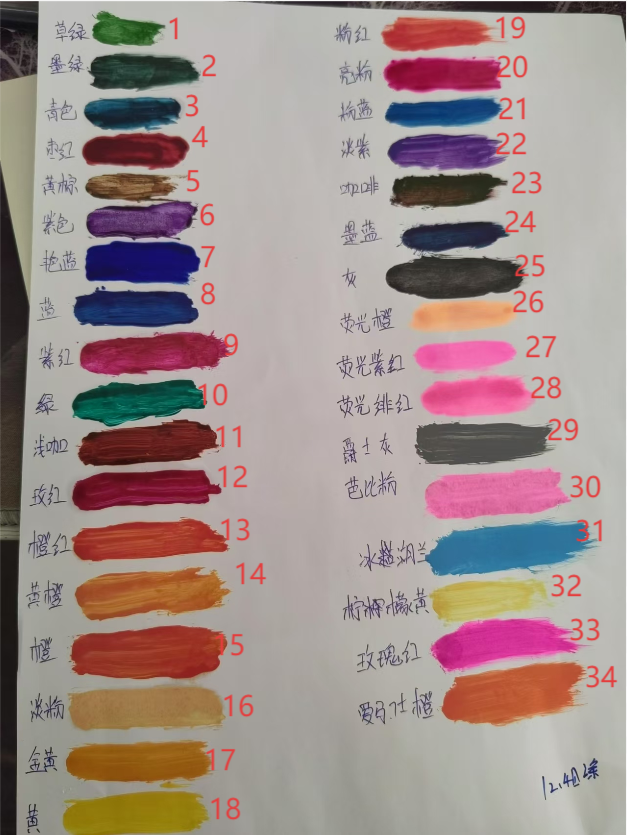 草绿 1
墨绿 2
青色 3
枣红 4
黄棕 5
紫色 6
艳蓝 7
蓝 8
紫红 9
绿 10
浅咖 11
玫红 12
橙红 13
黄橙 14
橙 15
淡粉 16
金黄 17
黄 18
粉红 19
亮粉 20
粉蓝 21
淡紫 22
咖啡 23
墨蓝 24
灰 25
荧光橙 26
荧光紫红 27
荧光绯红 28
爵士灰 29
芭比粉 30
冰 31
柠檬黄 32
玫瑰红 33
爱马仕橙 34